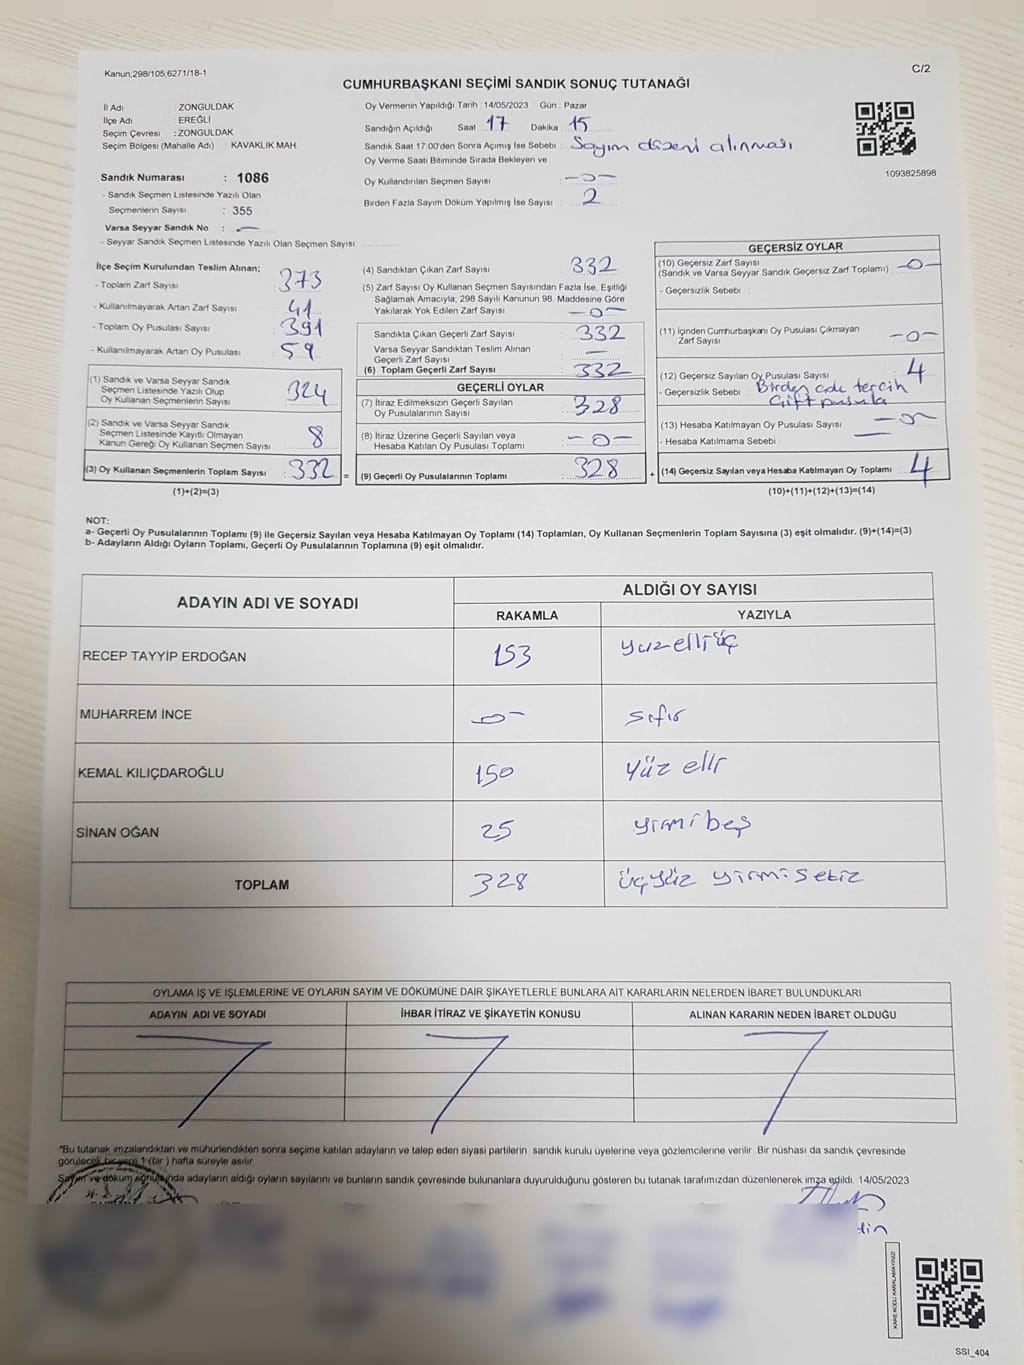 Kanun;298/105,6271/18-1
C/2
CUMHURBAŞKANI SEÇİMİ SANDIK SONUÇ TUTANAĞI
İl Adı : ZONGULDAK
İlçe Adı : EREĞLİ
Seçim Çevresi : ZONGULDAK
Seçim Bölgesi (Mahalle Adı) : KAVAKLIK MAH.
Sandık Numarası : 1086
- Sandık Seçmen Listesinde Yazılı Olan
Seçmenlerin Sayısı : 355
Varsa Seyyar Sandık No : —
- Seyyar Sandık Seçmen Listesinde Yazılı Olan Seçmen Sayısı:
Oy Vermenin Yapıldığı Tarih : 14/05/2023 Gün : Pazar
Sandığın Açıldığı Saat 17 Dakika : 15
Sandık Saat 17:00'den Sonra Açımış İse Sebebi : Sayım düzeni alınması
Oy Verme Saati Bitiminde Sırada Bekleyen ve
Oy Kullandırılan Seçmen Sayısı : —0—
Birden Fazla Sayım Döküm Yapılmış İse Sayısı : 2
1093825898
İlçe Seçim Kurulundan Teslim Alınan;
- Toplam Zarf Sayısı : 373
- Kullanılmayarak Artan Zarf Sayısı : 41
- Toplam Oy Pusulası Sayısı : 391
- Kullanılmayarak Artan Oy Pusulası : 59
(1) Sandık ve Varsa Seyyar Sandık
Seçmen Listesinde Yazılı Olup
Oy Kullanan Seçmenlerin Sayısı : 324
(2) Sandık ve Varsa Seyyar Sandık
Seçmen Listesinde Kayıtlı Olmayan
Kanun Gereği Oy Kullanan Seçmen Sayısı : 8
(3) Oy Kullanan Seçmenlerin Toplam Sayısı : 332 =
(1)+(2)=(3)
(4) Sandıktan Çıkan Zarf Sayısı : 332
(5) Zarf Sayısı Oy Kullanan Seçmen Sayısından Fazla İse, Eşitliği
Sağlamak Amacıyla; 298 Sayılı Kanunun 98. Maddesine Göre
Yakılarak Yok Edilen Zarf Sayısı : —0—
Sandıkta Çıkan Geçerli Zarf Sayısı : 332
Varsa Seyyar Sandıktan Teslim Alınan
Geçerli Zarf Sayısı : —
(6) Toplam Geçerli Zarf Sayısı : 332
GEÇERLİ OYLAR
(7) İtiraz Edilmeksizin Geçerli Sayılan
Oy Pusulalarının Sayısı : 328
(8) İtiraz Üzerine Geçerli Sayılan veya
Hesaba Katılan Oy Pusulası Toplamı : —0—
(9) Geçerli Oy Pusulalarının Toplamı : 328 +
GEÇERSİZ OYLAR
(10) Geçersiz Zarf Sayısı
(Sandık ve Varsa Seyyar Sandık Geçersiz Zarf Toplamı) : —0—
- Geçersizlik Sebebi :
(11) İçinden Cumhurbaşkanı Oy Pusulası Çıkmayan
Zarf Sayısı : —0—
(12) Geçersiz Sayılan Oy Pusulası Sayısı : 4
- Geçersizlik Sebebi : Birden çok tercih
Çift pusula
(13) Hesaba Katılmayan Oy Pusulası Sayısı : —0—
- Hesaba Katılmama Sebebi : —
(14) Geçersiz Sayılan veya Hesaba Katılmayan Oy Toplamı : 4
(10)+(11)+(12)+(13)=(14)
NOT:
a- Geçerli Oy Pusulalarının Toplamı (9) ile Geçersiz Sayılan veya Hesaba Katılmayan Oy Toplamı (14) Toplamları, Oy Kullanan Seçmenlerin Toplam Sayısına (3) eşit olmalıdır. (9)+(14)=(3)
b- Adayların Aldığı Oyların Toplamı, Geçerli Oy Pusulalarının Toplamına (9) eşit olmalıdır.
ADAYIN ADI VE SOYADI
ALDIĞI OY SAYISI
RAKAMLA YAZIYLA
RECEP TAYYİP ERDOĞAN 153 yüzelliüç
MUHARREM İNCE —0— sıfır
KEMAL KILIÇDAROĞLU 150 yüz elli
SİNAN OĞAN 25 yirmibeş
TOPLAM 328 üçyüz yirmisekiz
OYLAMA İŞ VE İŞLEMLERİNE VE OYLARIN SAYIM VE DÖKÜMÜNE DAİR ŞİKAYETLERLE BUNLARA AİT KARARLARIN NELERDEN İBARET BULUNDUKLARI
ADAYIN ADI VE SOYADI İHBAR İTİRAZ VE ŞİKAYETİN KONUSU ALINAN KARARIN NEDEN İBARET OLDUĞU
*Bu tutanak imzalandıktan ve mühürlendikten sonra seçime katılan adayların ve talep eden siyasi partilerin sandık kurulu üyelerine veya gözlemcilerine verilir. Bir nüshası da sandık çevresinde
görülecek bir yere 1 (bir ) hafta süreyle asılır.
Sayım ve döküm sonucunda adayların aldığı oyların sayılarını ve bunların sandık çevresinde bulunanlara duyurulduğunu gösteren bu tutanak tarafımızdan düzenlenerek imza edildi. 14/05/2023
KARE KODU KARALAMAYINIZ!
SSI_404